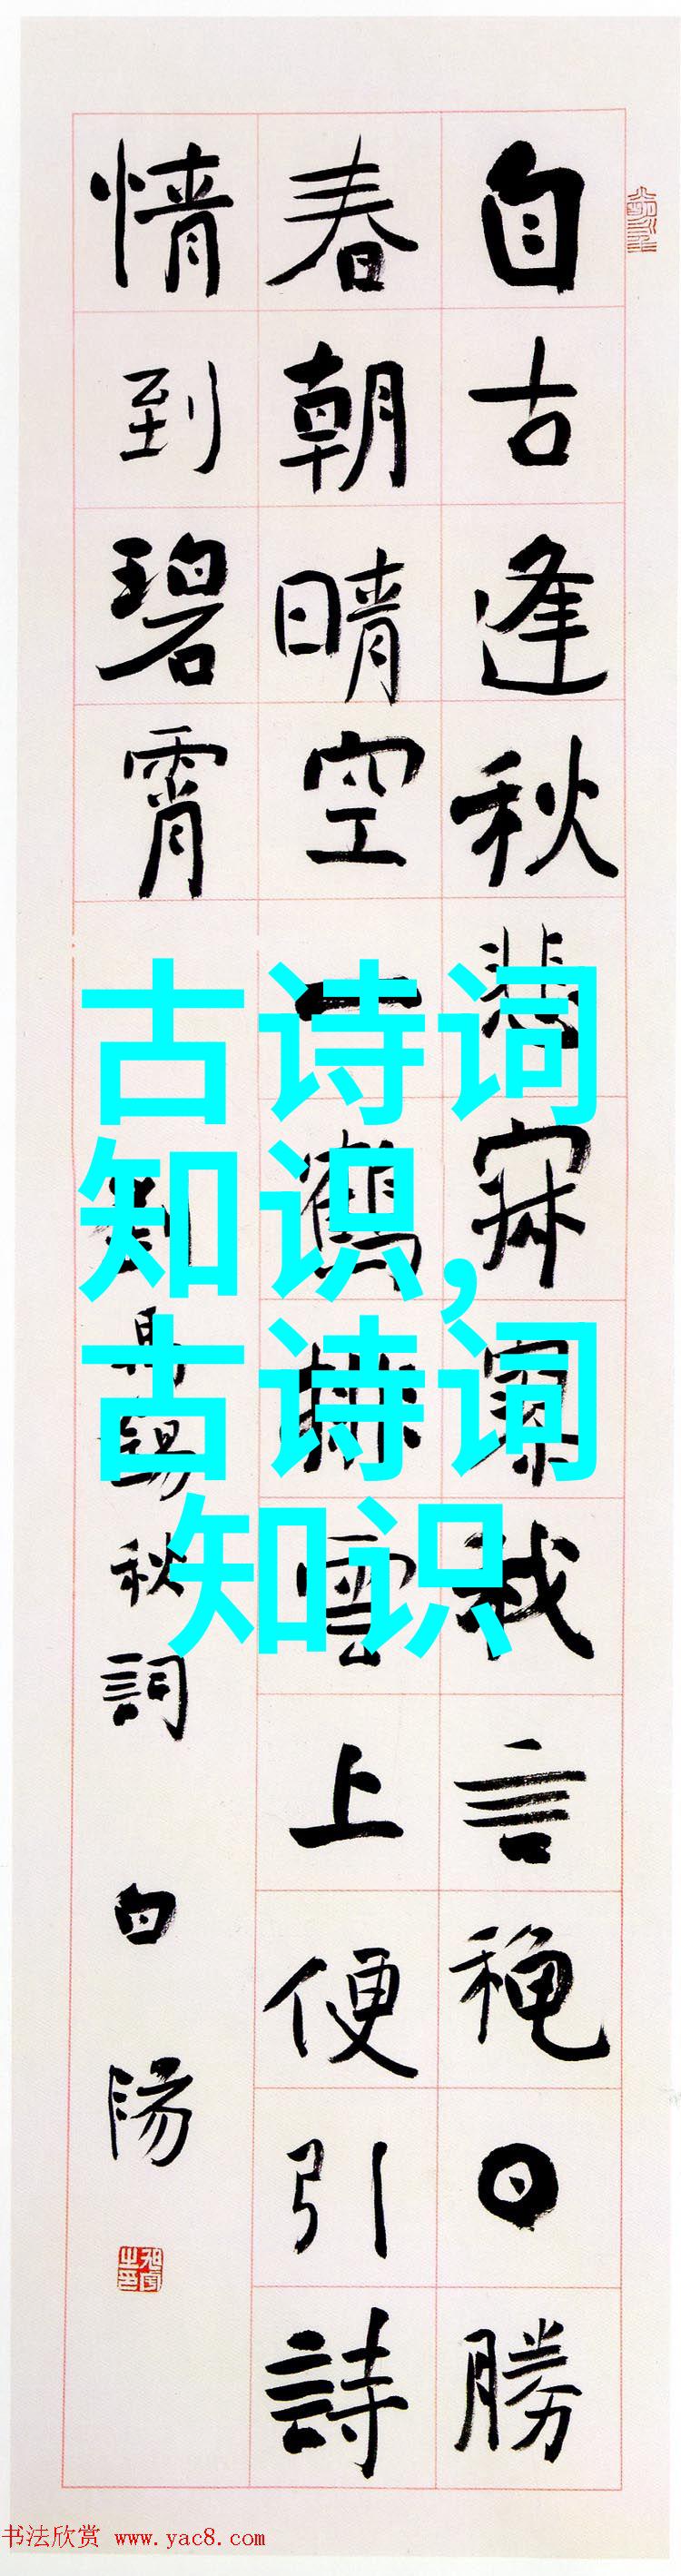 自古逢秋悲寂寥我言秋日勝
春朝晴空一鶴排雲上便引詩
情到碧霄
劉禹錫秋詞
白陽
古诗词
知识,
古诗词
知识
书法欣赏 www.yac8.com